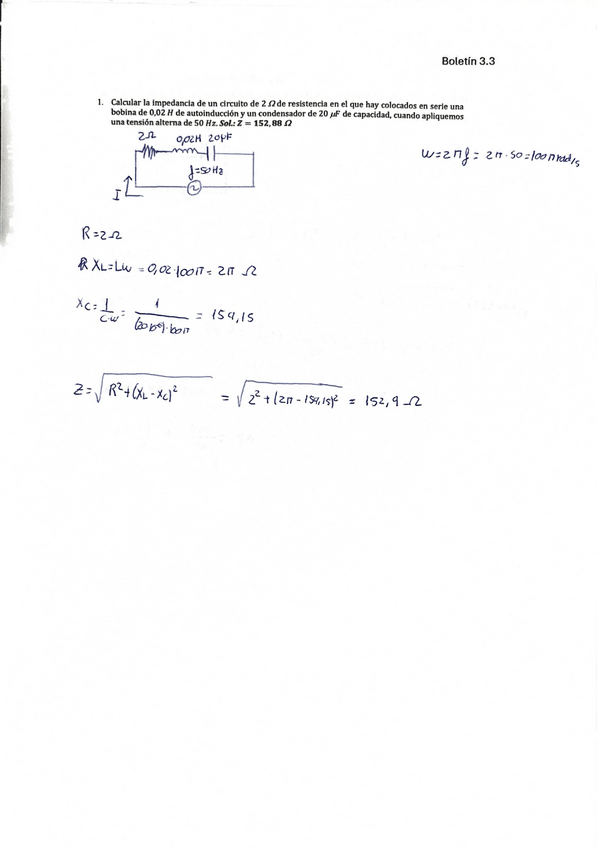 Boletín 3.3
1. Calcular la impedancia de un circuito de 2 Ω de resistencia en el que hay colocados en serie una
bobina de 0,02 H de autoinducción y un condensador de 20 μF de capacidad, cuando apliquemos
una tensión alterna de 50 Hz. Sol.: Z = 152,88 Ω
2Ω 0,02H 20μF
f=50Hz
I
W=2πf = 2π·50=100π rad/s
R=2Ω
XL=Lω = 0,02·100π= 2π Ω
Xc= 1/C·ω = 1/(20·10⁻⁶)·100π = 159,15
Z=√R²+(XL-Xc)² = √2²+(2π-159,15)² = 152,9 Ω